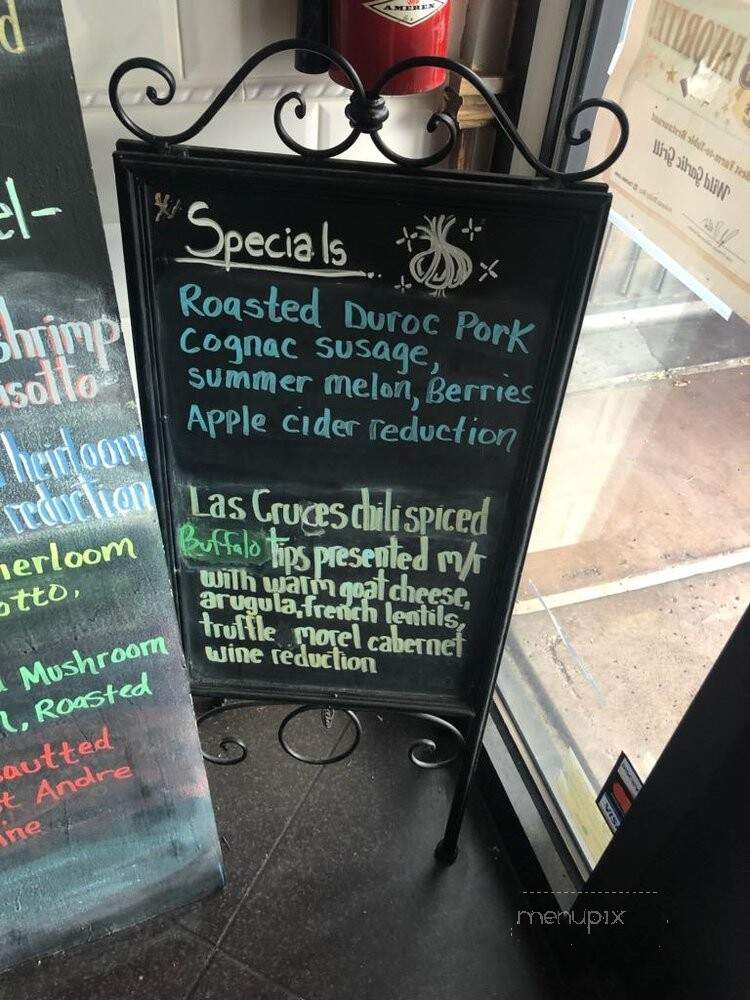 AMEREX
Specials
Roasted Duroc Pork
Cognac susage,
summer melon, Berries
Apple cider reduction
Las Cruces chili spiced
Buffalo tips presented m/r
with warm goat cheese,
arugula, french lentils,
truffle morel cabernet
wine reduction
d
el-
shrimp
isotto
heirloom
reduction
herloom
otto,
d Mushroom
l, Roasted
sautted
t Andre
ine
FAVORITE
Best Farm-to-Table Restaurant
Wild Garlic Grill
VISA
menupix